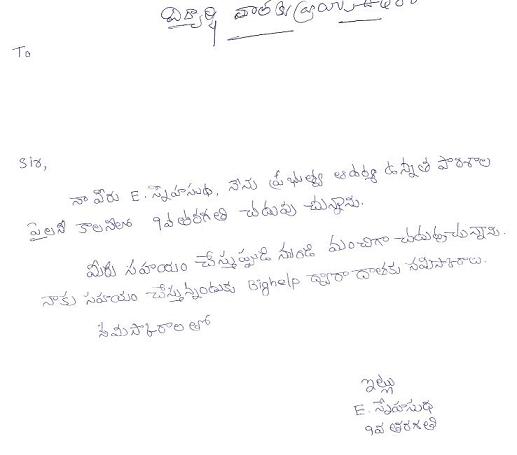 విద్యార్థి దాతకు వ్రాయు ఉత్తరం
To
Sir,
నా పేరు E. స్నేహసుధ. నేను ప్రభుత్వ ఆదర్శ ఉన్నత పాఠశాల
పైలట్ కాలనీలో 9వ తరగతి చదువు చున్నాను.
మీరు సహాయం చేస్తున్నప్పటి నుండి మంచిగా చదువుచున్నాను.
నాకు సహాయం చేస్తున్నందుకు Bighelp ద్వారా దాతకు నమస్కారాలు.
నమస్కారాలతో
ఇట్లు
E. స్నేహసుధ
9వ తరగతి